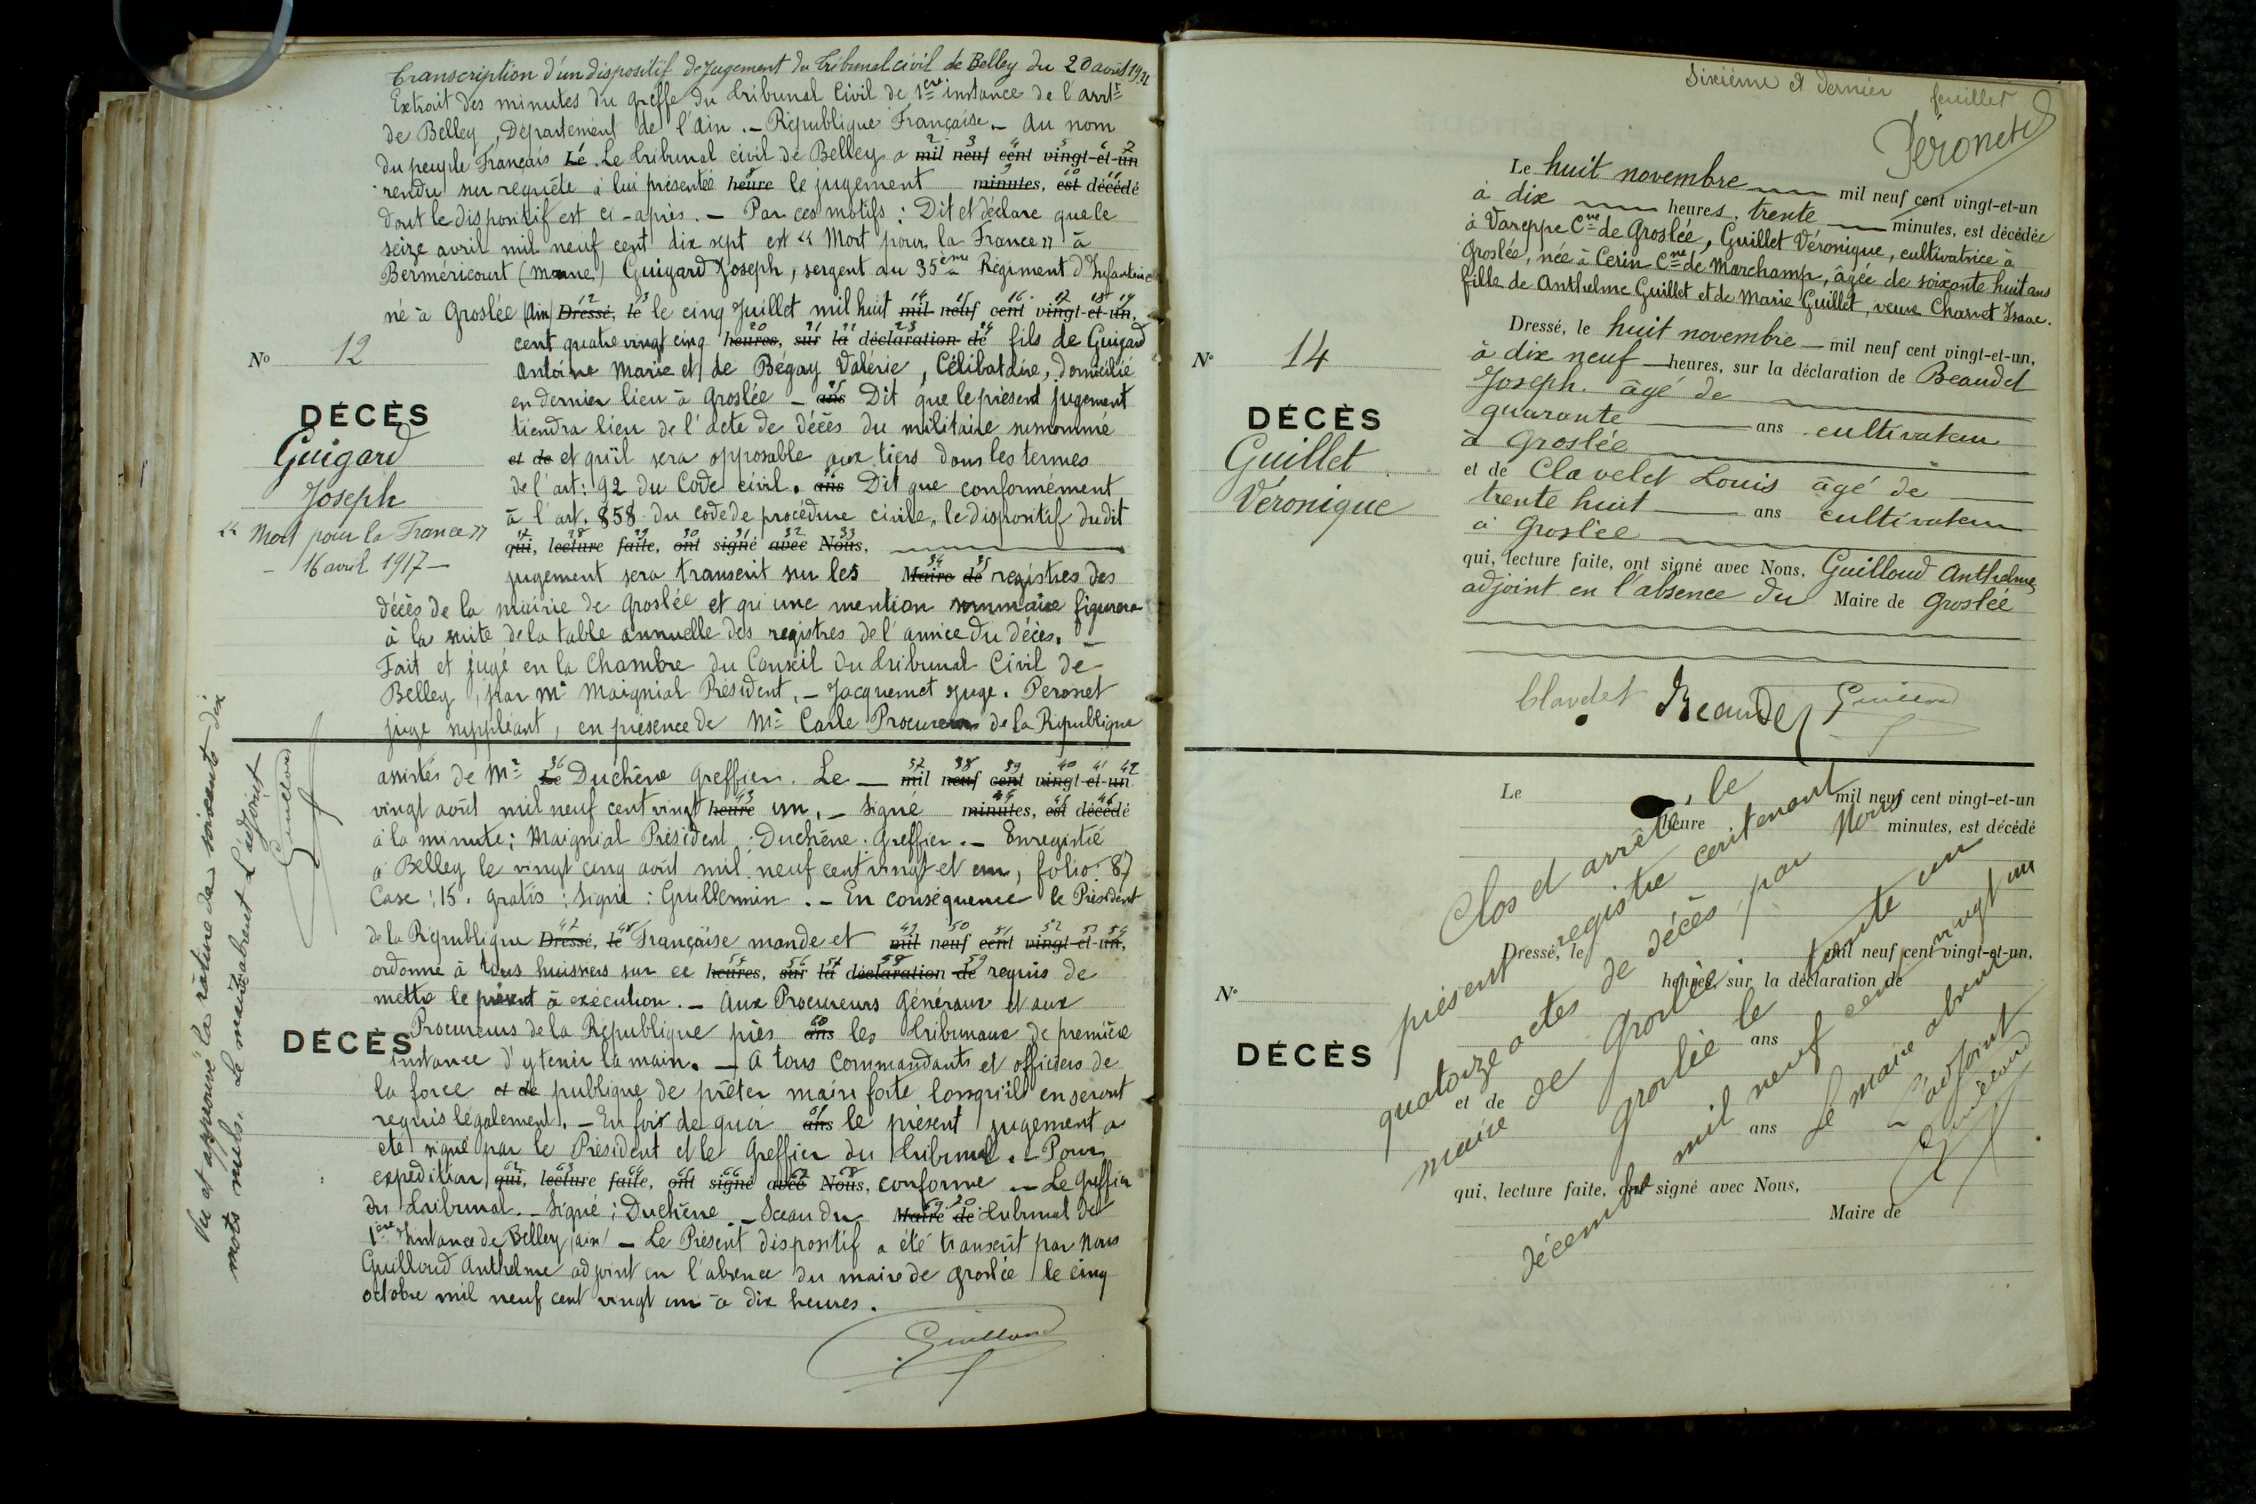 Transcription d'un dispositif de Jugement du Tribunal civil de Belley du 20 août 1921
Extrait des minutes du greffe du Tribunal Civil de 1ère instance de l'arrt
de Belley, Département de l'Ain. - République Française. - Au nom
du peuple Français Le. Le Tribunal civil de Belley a mil neuf cent vingt-et-un
rendu sur requête à lui présentée heure le jugement minutes, est décédé
dont le dispositif est ci-après. - Par ces motifs : Dit et déclare que le
seize avril mil neuf cent dix sept est "Mort pour la France" à
Berméricourt (Marne) Guigard Joseph, sergent au 35ème Régiment d'Infanterie
né à Groslée (Ain) Dressé, le le cinq Juillet mil huit mil neuf cent vingt-et-un,
cent quatre vingt cinq heures, sur la déclaration de fils de Guigard
Antoine Marie et de Bégay Valérie, Célibataire, Domicilié
en dernier lieu à Groslée - ans Dit que le présent jugement
tiendra lieu de l'acte de décès du militaire susnommé
et de et qu'il sera opposable aux tiers dans les termes
de l'art: 92 du Code civil. ans Dit que conformément
à l'art. 858 du code de procédure civile, le dispositif dudit
qui, lecture faite, ont signé avec Nous,
jugement sera transcrit sur les Maire de registres des
décès de la mairie de Groslée et qu'une mention sommaire figurera
à la suite de la table annuelle des registres de l'année du décès. -
Fait et jugé en la Chambre du Conseil du Tribunal Civil de
Belley, par Mr Maignial Président, - Jacquemet Juge. Peronet
juge suppléant, en présence de Mr Carle Procureur de la République
N° 12
DÉCÈS
Guigard
Joseph
"Mort pour la France"
- 16 avril 1917 -
assistés de Mr Le Duchêne Greffier. Le - mil neuf cent vingt-et-un
vingt août mil neuf cent vingt heure un. - Signé minutes, est décédé
à la minute : Maignial Président : Duchêne. Greffier. - Enregistré
à Belley le vingt cinq août mil neuf cent vingt et un, folio : 87
Case : 15. gratis : signé : Guillermin. - En conséquence le Président
de la République Dressé, le Française mande et mil neuf cent vingt-et-un,
ordonne à tous huissiers sur ce heures, sur la déclaration de requis de
mettre le présent à exécution. - Aux Procureurs Généraux et aux
Procureurs de la République près ans les Tribunaux de première
instance d'y tenir la main. - A tous Commandants et officiers de
la force et de publique de prêter main forte lorsqu'ils en seront
requis légalement. - En foi de quoi ans le présent jugement a
été signé par le Président et le Greffier du Tribunal. - Pour
expédition qui, lecture faite, ont signé avec Nous, conforme - Le Greffier
du Tribunal. - Signé : Duchêne. - Sceau du Maire de Tribunal de
1ère Instance de Belley (Ain) - Le Présent dispositif a été transcrit par Nous
Guilloud Anthelme adjoint en l'absence du maire de Groslée le cinq
octobre mil neuf cent vingt un à dix heures.
Guilloud
DÉCÈS
Vu et approuvé la rature de soixante dix
mots nuls. Le maire absent L'adjoint
Guilloud
Sixième et dernier feuillet
Péronet
Le huit novembre mil neuf cent vingt-et-un
à dix heures, trente minutes, est décédée
à Vareppe Cne de Groslée, Guillet Véronique, cultivatrice à
Groslée, née à Cerin Cne de Marchamp, âgée de soixante huit ans
fille de Anthelme Guillet et de Marie Guillet, veuve Charvet Isaac.
Dressé, le huit novembre mil neuf cent vingt-et-un,
à dix neuf heures, sur la déclaration de Beaudet
Joseph. âgé de
quarante ans cultivateur
à Groslée
et de Clavelet Louis âgé de
trente huit ans cultivateur
à Groslée
qui, lecture faite, ont signé avec Nous, Guilloud Anthelme
adjoint en l'absence du Maire de Groslée
Clavelet Beaudet Guilloud
N° 14
DÉCÈS
Guillet
Véronique
Le mil neuf cent vingt-et-un
heure minutes, est décédé
Dressé, le mil neuf cent vingt-et-un,
heures, sur la déclaration de
ans
et de
ans
qui, lecture faite, ont signé avec Nous,
Maire de
N°
DÉCÈS
Clos et arrêté, le
présent registre contenant
quatorze actes de décès par Nous
maire de Groslée.
Groslée le trente un
décembre mil neuf cent vingt un
Le maire absent
L'adjoint
Guilloud